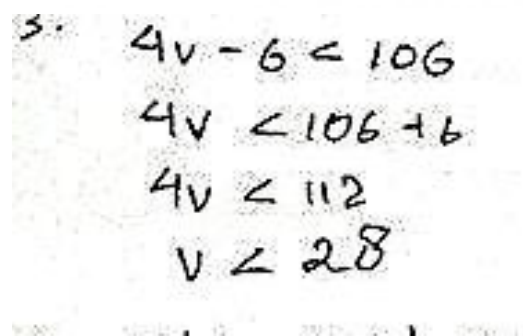 3.
4v - 6 < 106
4v < 106 + 6
4v < 112
v < 28